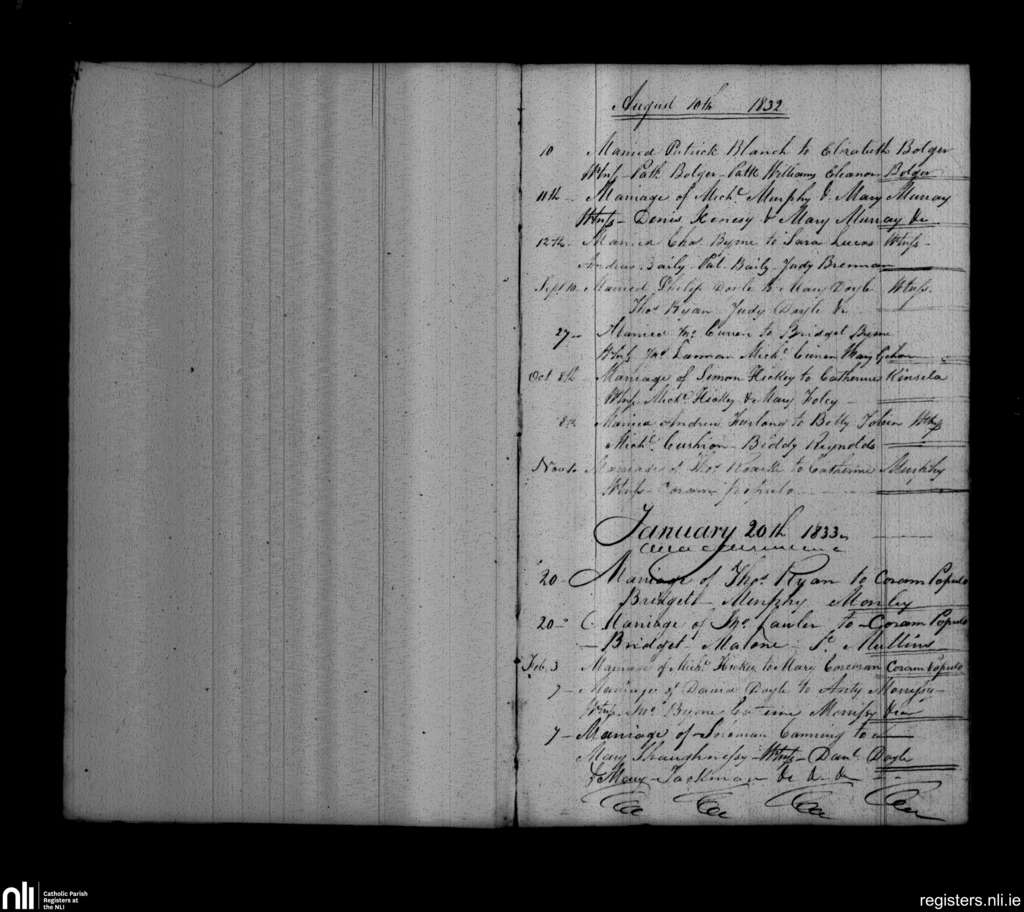 August 10th 1832
10 Married Patrick Blanch to Elizabeth Bolger
Wtnss - Patk Bolger - Patk Williams Eleanor Bolger
11th - Marriage of Michl Murphy & Mary Murray
Wtnss - Denis Kenesy & Mary Murray &c
12th - Married Chas Byrne to Sara Lucas Wtnss -
Andrew Baily - Pat Baily - Judy Brennan
Sept 10 - Married Philip Doyle to Mary Doyle Wtnss.
Thos Ryan Judy Doyle &c
27 - Married Jno Curren to Bridget Byrne
Wtnss Jno Michl Curren Mary
Oct 8th - Marriage of Simon Hickey to Catherine Kinsela
Wtnss Michl Hickey & Mary Foley -
8th Married Andrew to Betty Tobin Wtnss
Michl Cushion - Biddy Reynolds
Nov 10 Marriage of Thos Roark to Catherine Murphy
Wtnss - Coram Populo
January 20th 1833
20 - Marriage of Thos Ryan to Coram Populo
Bridget - Murphy
20 - Marriage of Jno Lawler to - Coram Populo
- Bridget Malone - St Mullins
Feb. 3 Marriage of Michl Hickey to Mary Corcoran Coram Populo
7 - Marriage of David Doyle to Anty
Wtnss - Jno Byrne &c
7 - Marriage of Canning to
Mary Shaughnessy - Wtnss - Danl Doyle
& Mary - &c &c &c
nli
Catholic Parish
Registers at
the NLI
registers.nli.ie